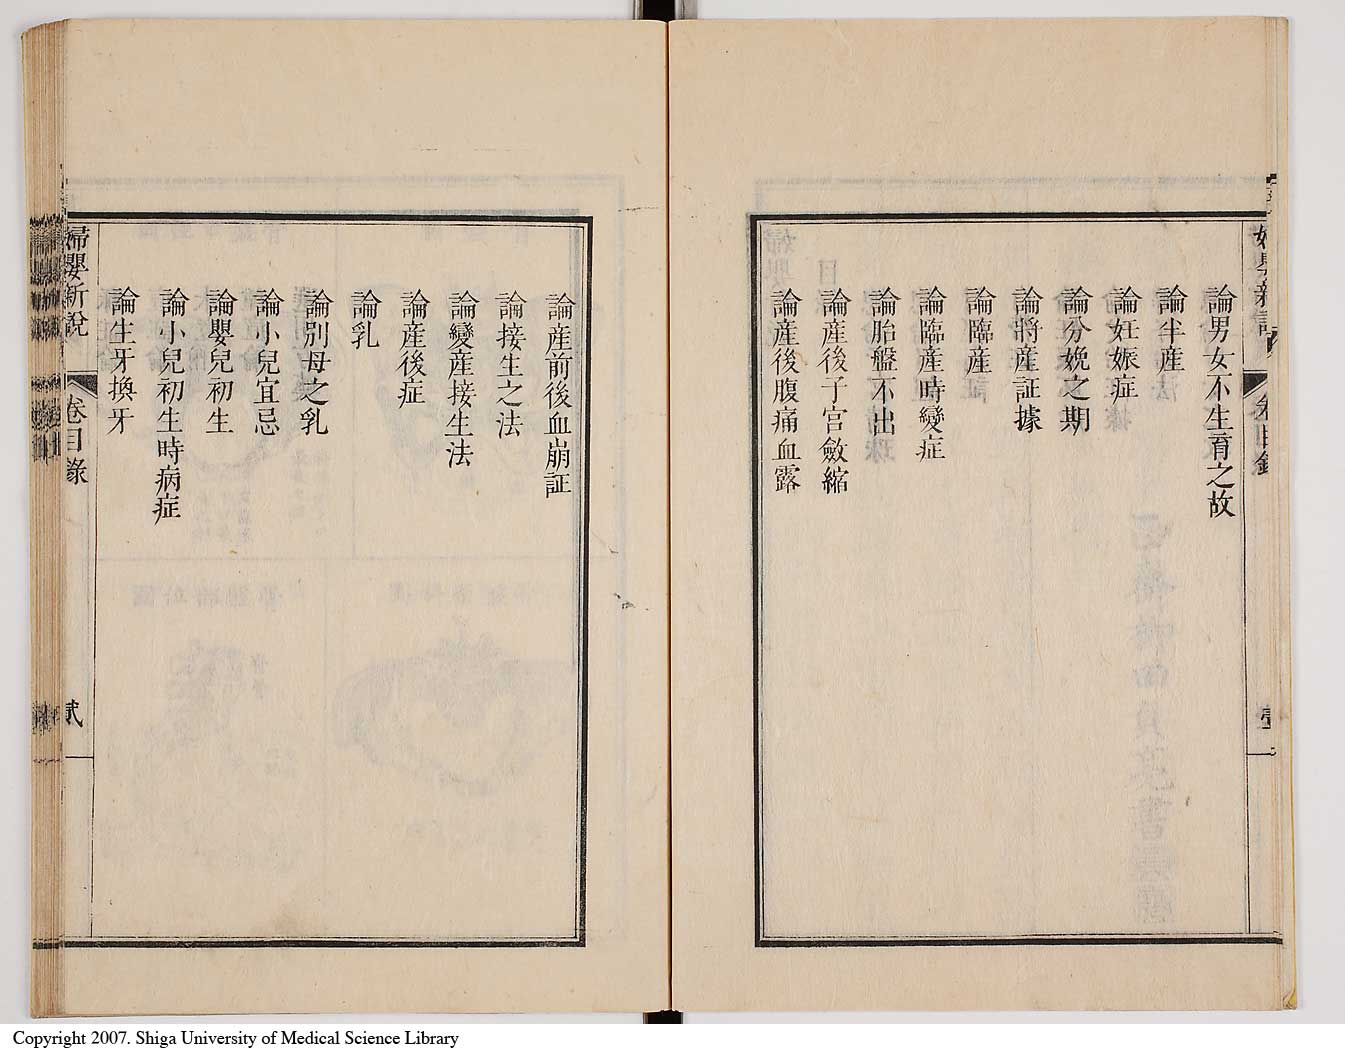 論男女不生育之故
論半產
論妊娠症
論分娩之期
論將產証據
論臨產
論臨產時變症
論胎盤不出
論產後子宮斂縮
論產後腹痛血露
論產前後血崩証
論接生之法
論變產接生法
論產後症
論乳
論別母之乳
論小兒宜忌
論嬰兒初生
論小兒初生時病症
論生牙換牙
婦嬰新說
卷目錄
貳
Copyright 2007. Shiga University of Medical Science Library